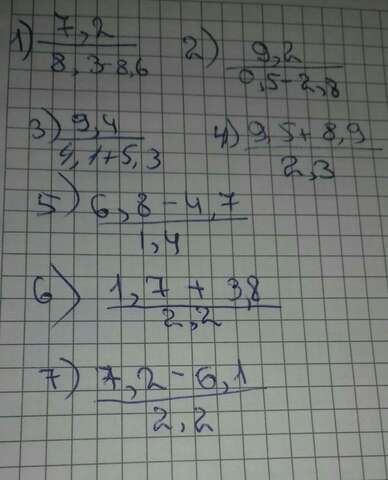 1) 7,2 / 8,3-8,6
2) 9,2 / 0,5-2,8
3) 9,4 / 4,1+5,3
4) 9,5+8,9 / 2,3
5) 6,8-4,7 / 1,4
6) 1,7+3,8 / 2,2
7) 7,2-6,1 / 2,2